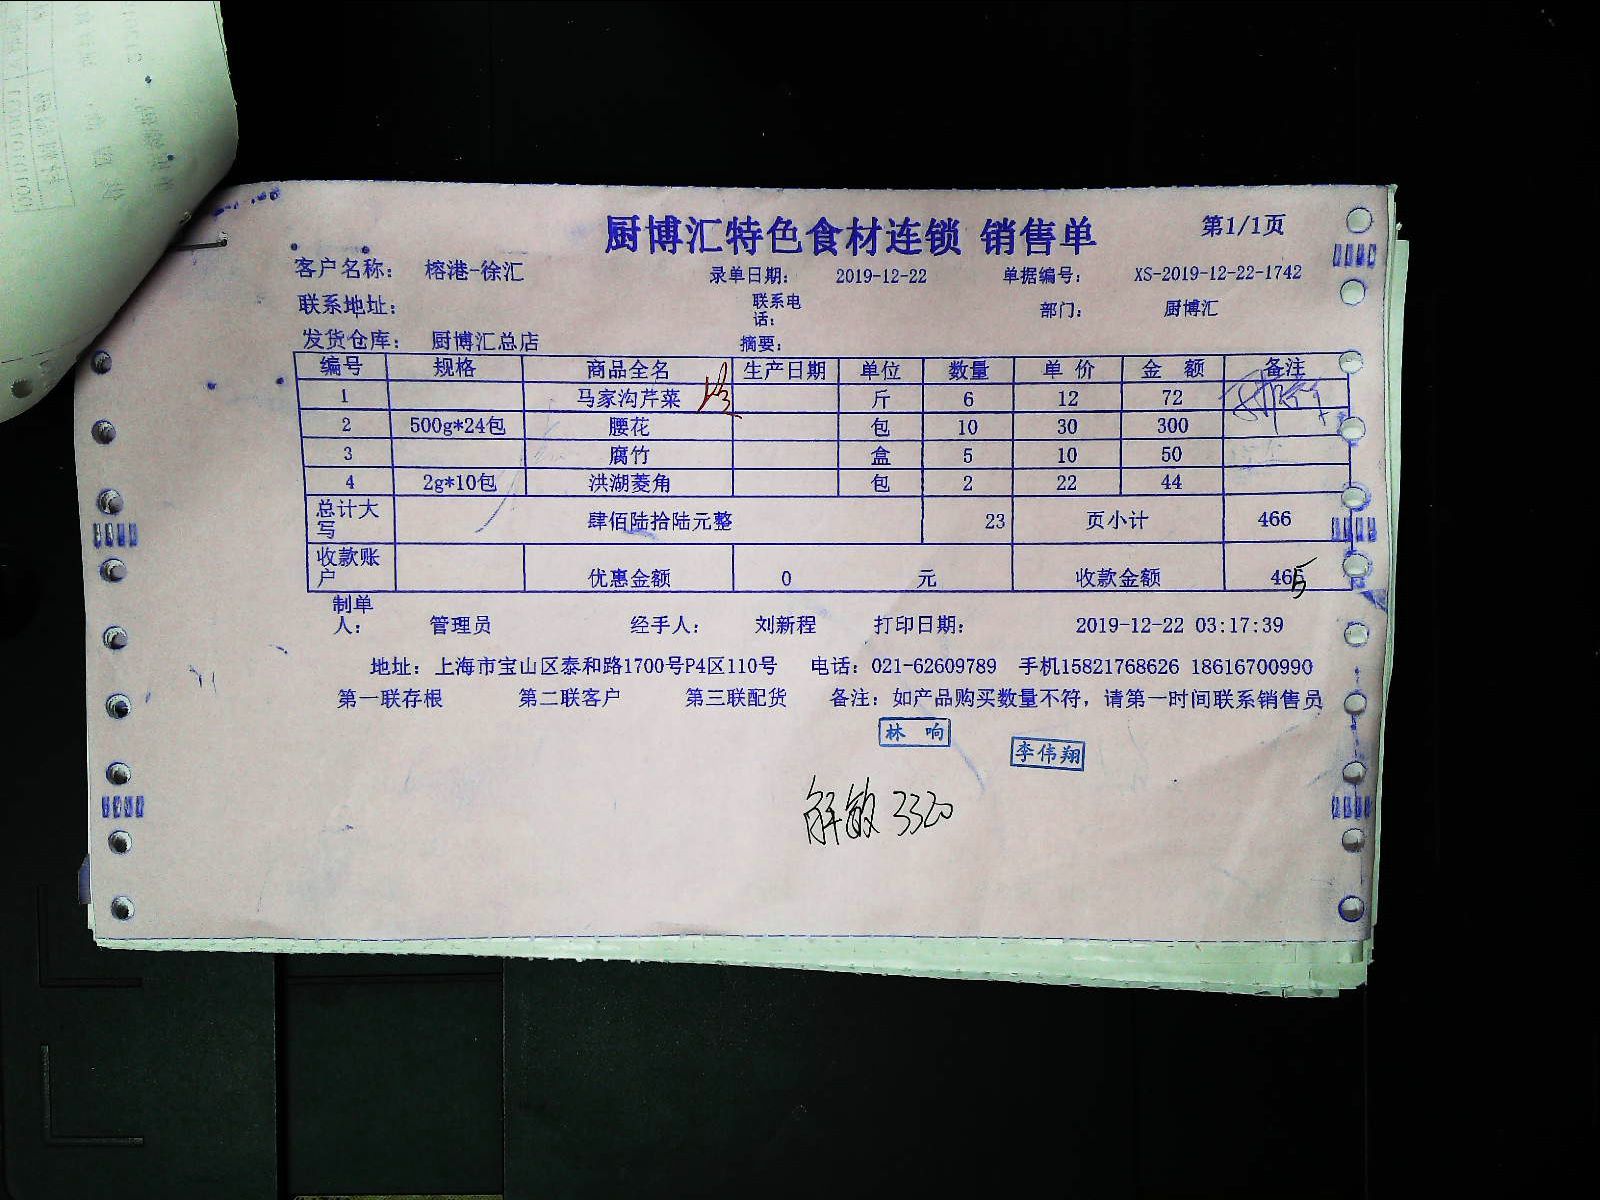 厨博汇特色食材连锁 销售单 第1/1页
客户名称: 榕港-徐汇 录单日期: 2019-12-22 单据编号: XS-2019-12-22-1742
联系地址: 联系电话: 部门: 厨博汇
发货仓库: 厨博汇总店 摘要:
编号 规格 商品全名 生产日期 单位 数量 单价 金额 备注
1 马家沟芹菜 斤 6 12 72
2 500g*24包 腰花 包 10 30 300
3 腐竹 盒 5 10 50
4 2g*10包 洪湖菱角 包 2 22 44
总计大写 肆佰陆拾陆元整 23 页小计 466
收款账户 优惠金额 0 元 收款金额 466
制单人: 管理员 经手人: 刘新程 打印日期: 2019-12-22 03:17:39
地址: 上海市宝山区泰和路1700号P4区110号 电话: 021-62609789 手机15821768626 18616700990
第一联存根 第二联客户 第三联配货 备注: 如产品购买数量不符, 请第一时间联系销售员
林响
李伟翔
解敏 3320